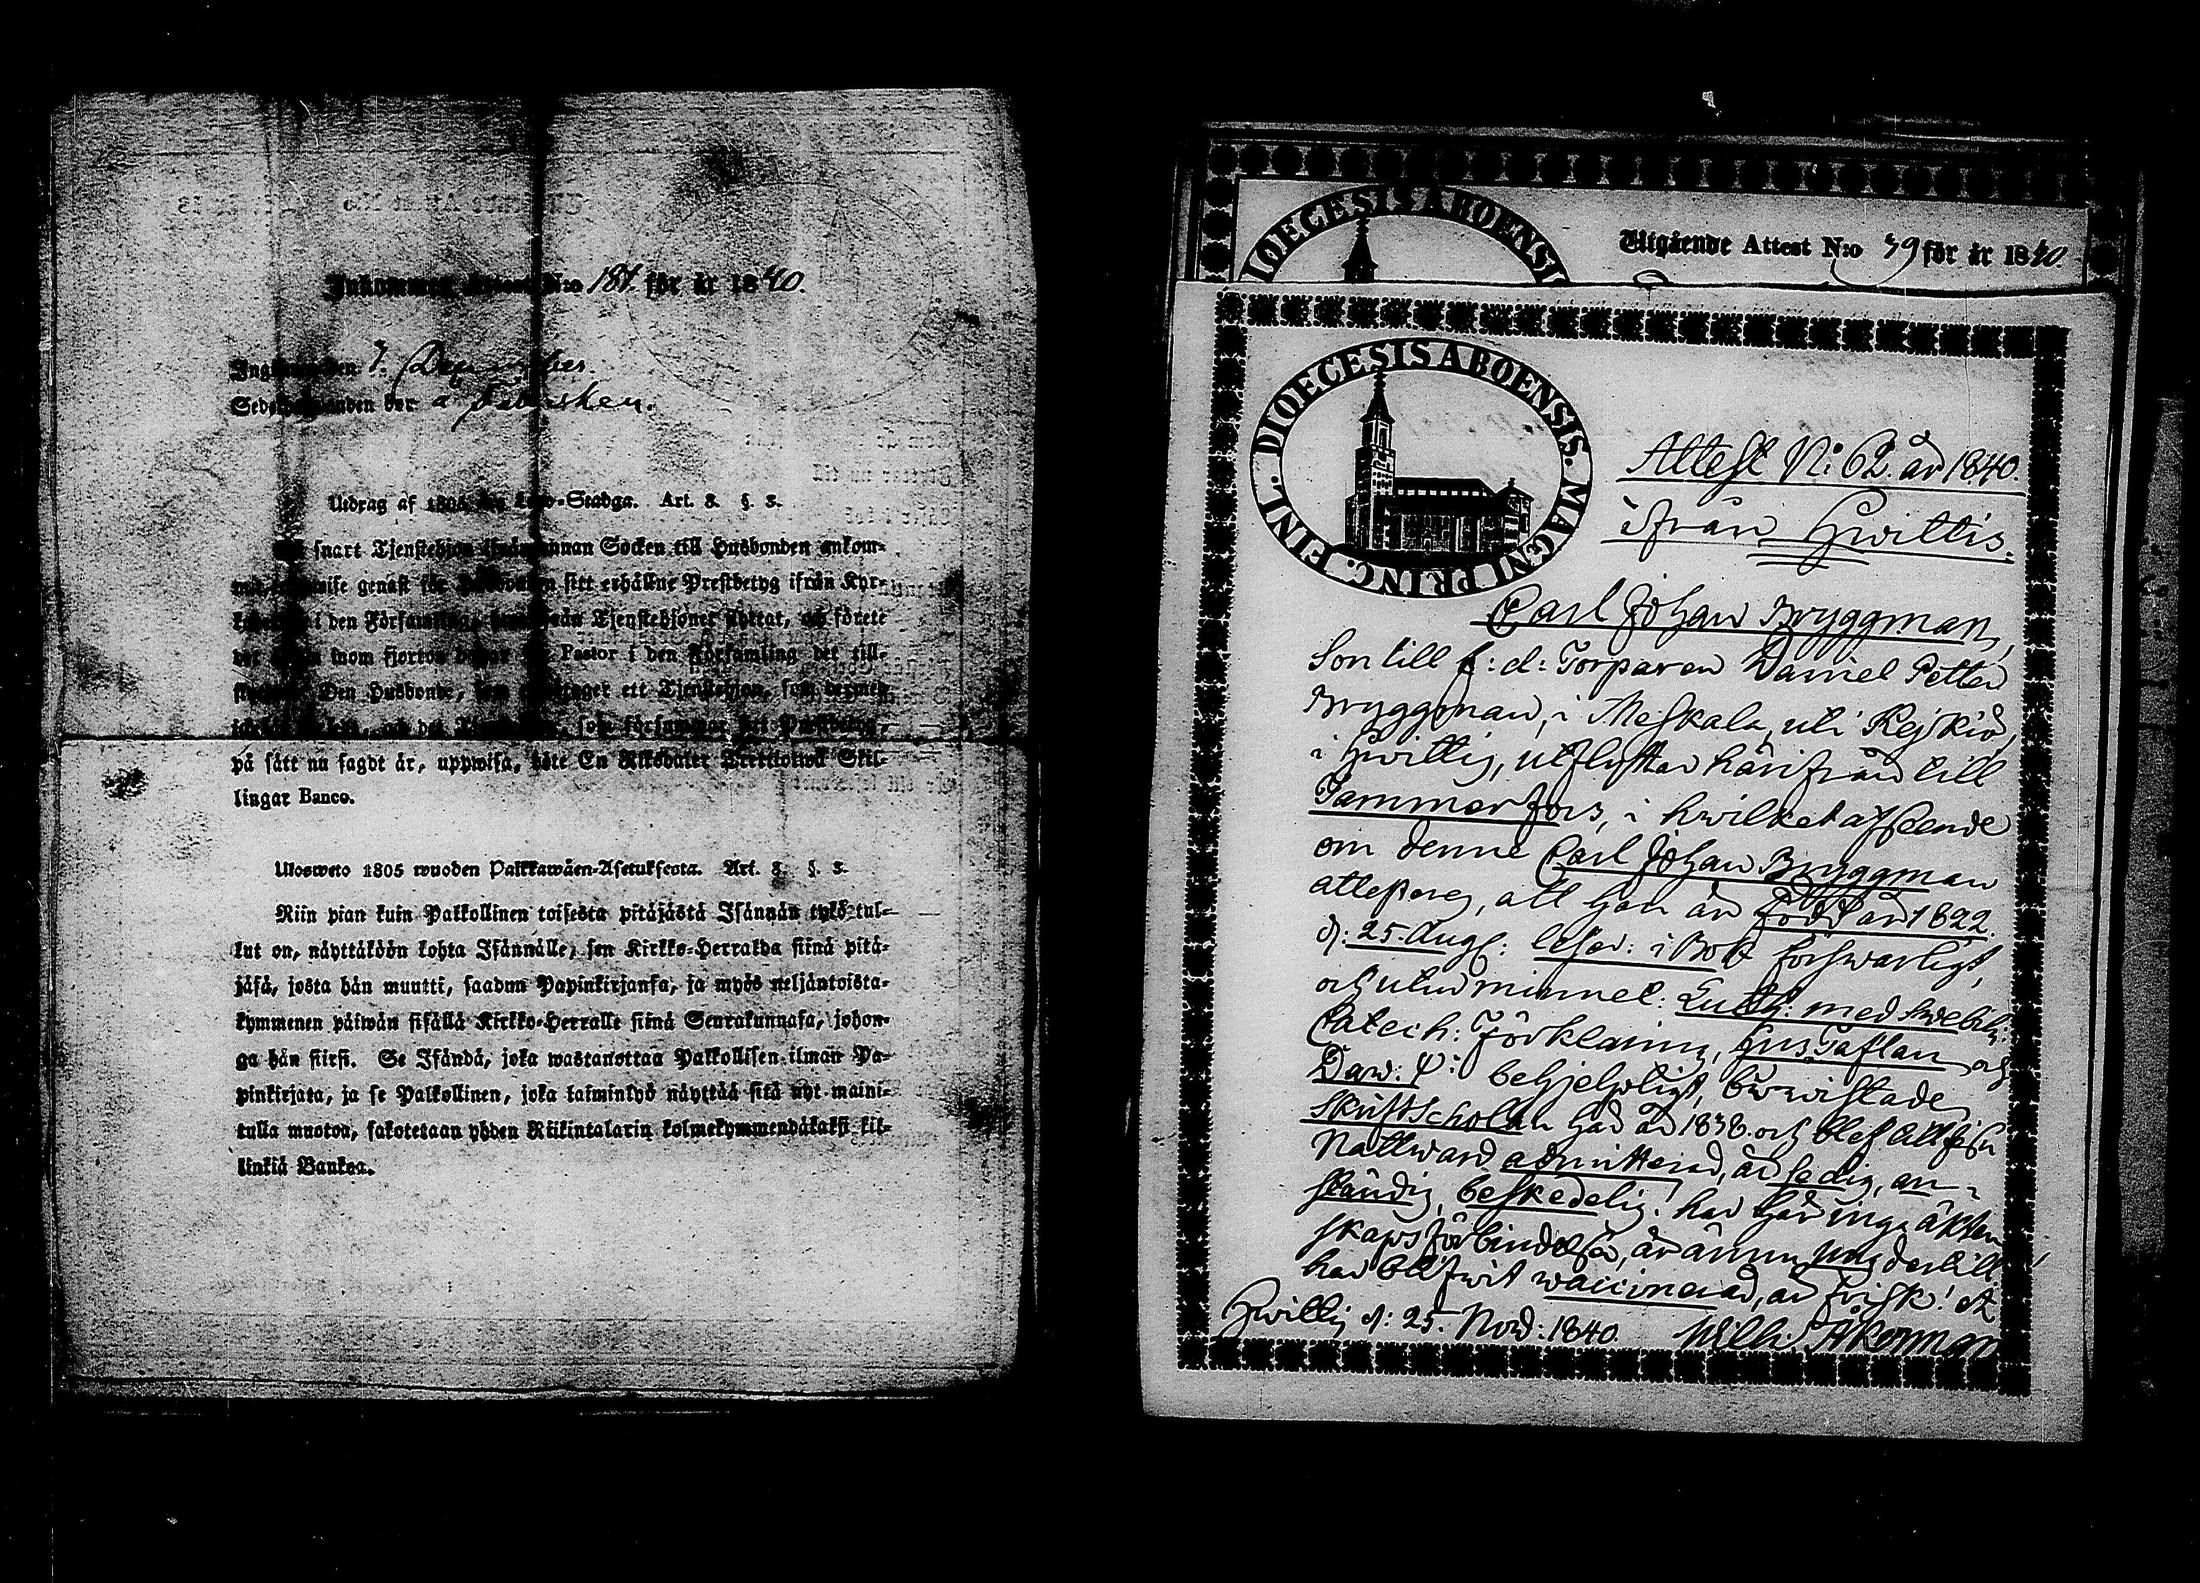 Inkommen Attest N:o 187. för år 1840.
Ingifven den 7. December.
Sedelhafvanden bor å Fabriken.
Utdrag af 1805 års Lego-Stadga. Art. 8. §. 3.
snart Tjenstehjon ifrån annan Socken till Husbonden ankom-
genast för Husbonden sitt erhållne Prestbetyg ifrån Kyr-
i den Församling, Tjenstehjonet flyttat, och förete
det inom fjorton dagar Pastor i den Församling det till-
Den Husbonde, som antager ett Tjenstehjon, som dermed
och det som försummar det Prestbetyg,
på sätt nu sagdt är, uppwisa, böte En Riksdaler Trettiotwå Skil-
lingar Banco.
Ulosweto 1805 wuoden Palkkawäen-Asetuksesta. Art. 8. §. 3.
Niin pian kuin Palkollinen toisesta pitäjästä Isännän tykö tul-
lut on, näyttäköön kohta Isännälle, sen Kirkko-Herralda siinä pitä-
jäsä, josta hän muutti, saadun Papinkirjansa, ja myös neljäntoista-
kymmenen päiwän sisällä Kirkko-Herralle siinä Seurakunnasa, johon-
ga hän siirsi. Se Isändä, joka wastanottaa Palkollisen ilman Pa-
pinkirjata, ja se Palkollinen, joka laiminlyö näyttää sitä nyt maini-
tulla muotoa, sakotetaan yhden Riikintalarin kolmekymmendäkaksi kil-
linkiä Bankoa.
DIOECESIS ABOENSI
Utgående Attest N:o 39 för år 1840.
FINL. DIOECESIS ABOENSIS. MAGNI PRINC.
Attest N: 62. år 1840.
ifrån Hwittis.
Carl Johan Bryggman,
Son till f: d: Torparen Daniel Petter
Bryggman, i Meskala, uti Kejkiö,
i Hwittis, utflyttar härifrån till
Tammerfors, i hwilket afseende
om denne Carl Johan Bryggman
attesteras, att han är född år 1822.
d: 25. Aug: läser: i Bok förswarligt,
och utur minnet: Luth: med Swebilii
Catech: Förklaring, Hus Taflan och
Daw: Ψ: behjelpligt, bewistade
Skriftscholan här år 1838. och blef till H: H:
Nattward admitterad, är ledig, an-
ständig, beskedelig! har här inga äkten
skapsförbindelser, är ännu ung dertill,
har blifwit waccinerad, är frisk! At
Hwittis d: 25. Nov: 1840. Wilh: Åkerman